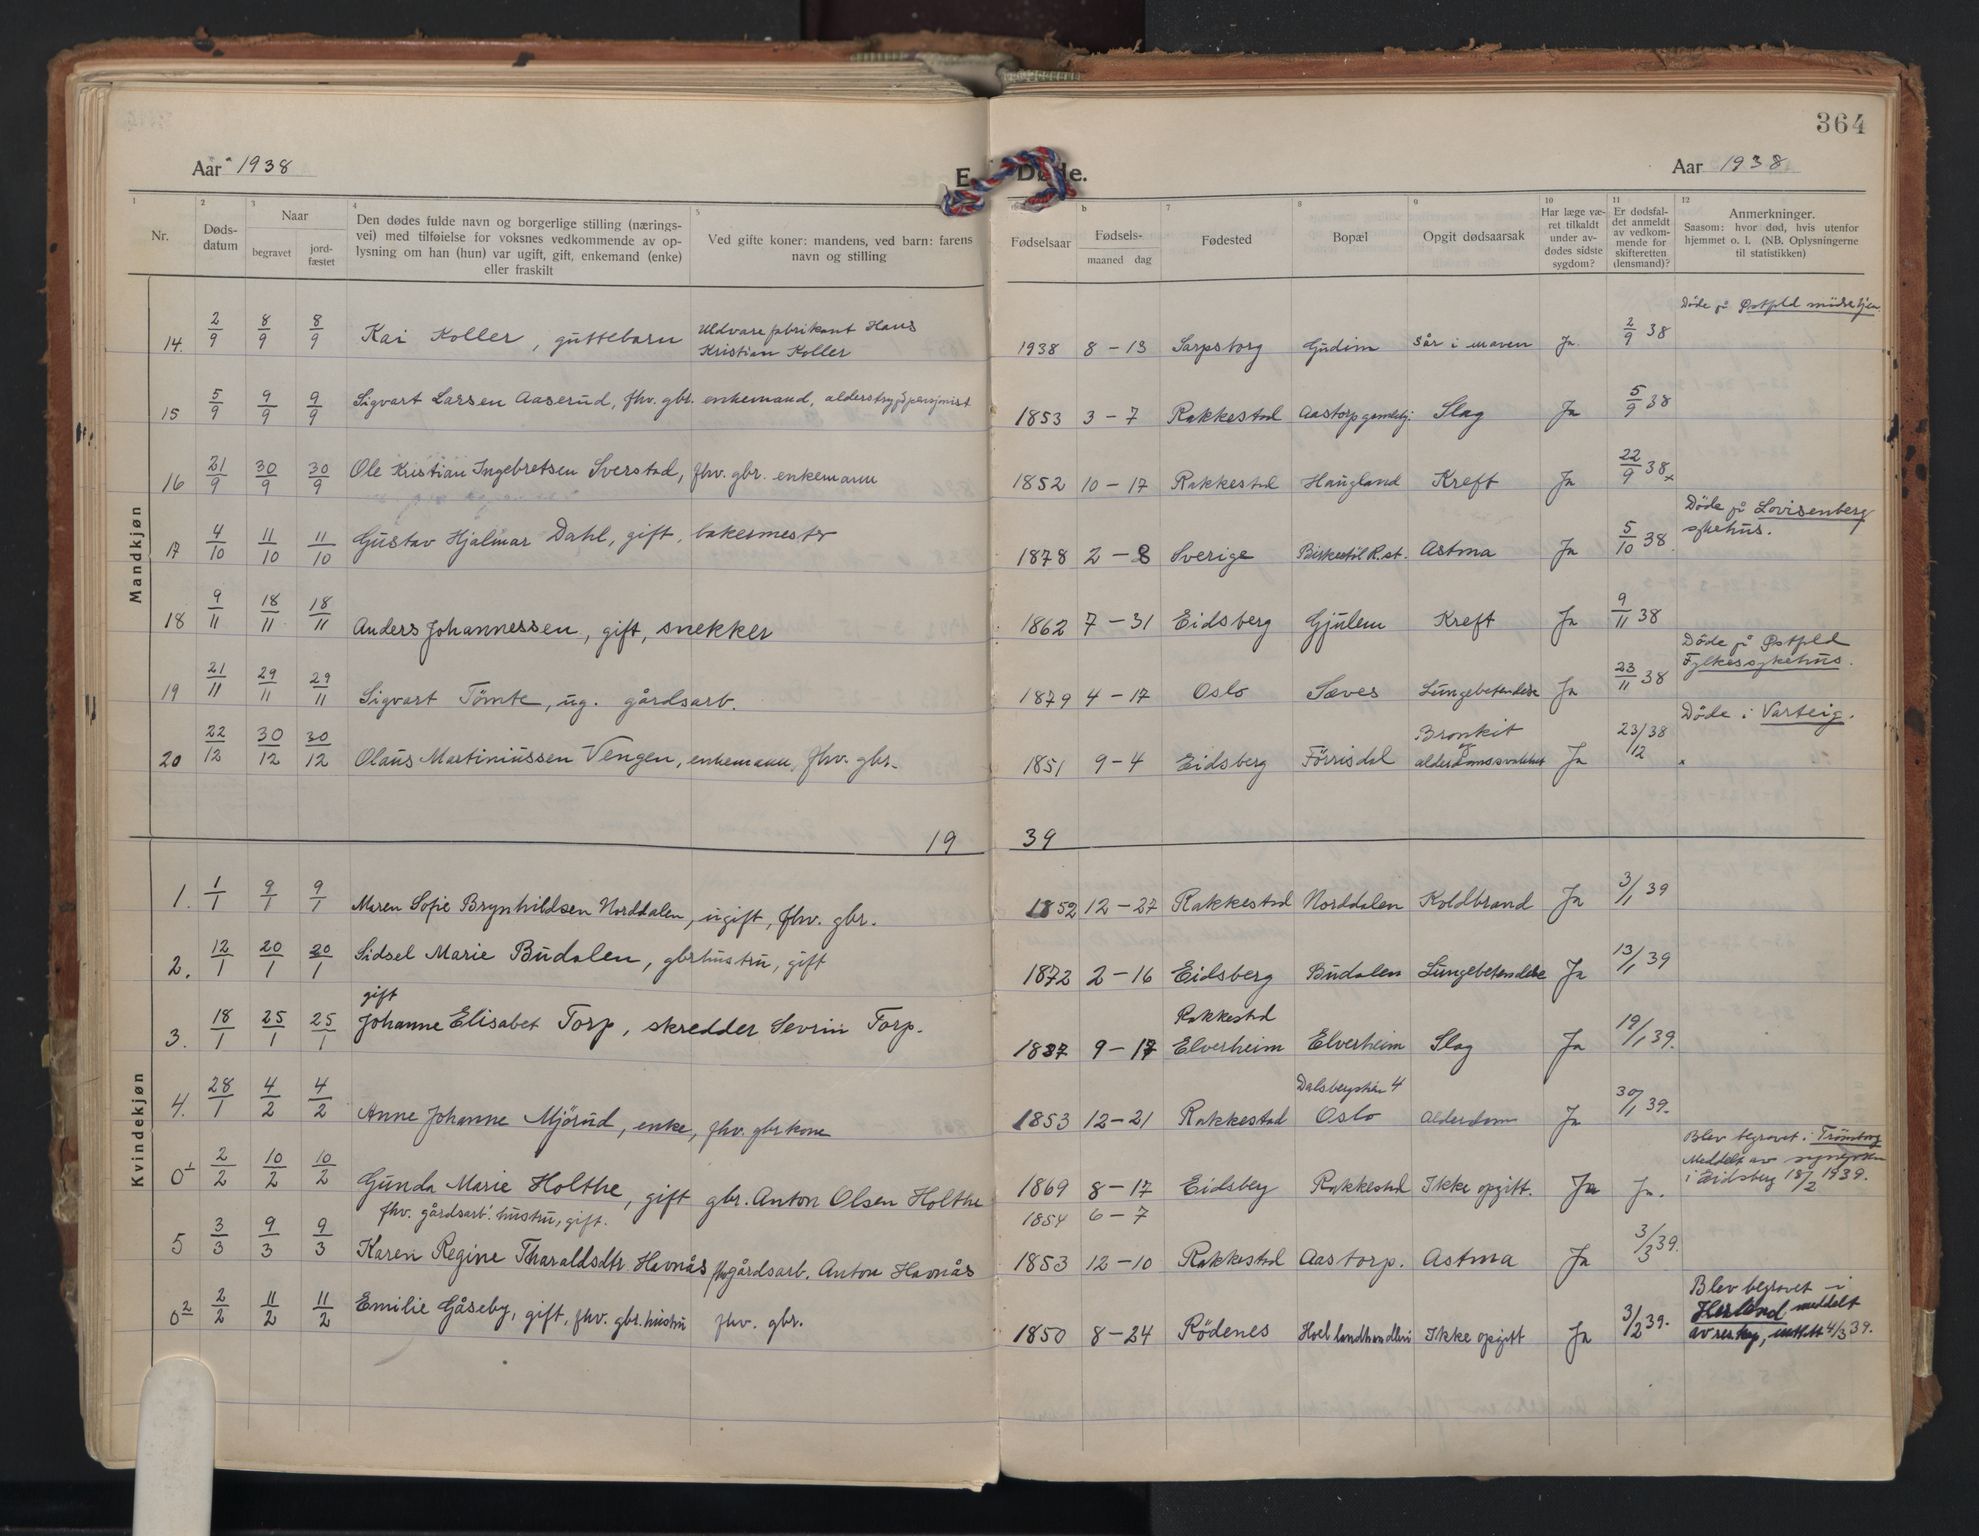 364
Aar 1938
E. Døde.
Aar 1938
1 2 3 4 5 b 7 8 9 10 11 12
Nr.
Døds-
datum
Naar
begravet
jord-
fæstet
Den dødes fulde navn og borgerlige stilling (nærings-
vei) med tilføielse for voksnes vedkommende av op-
lysning om han (hun) var ugift, gift, enkemand (enke)
eller fraskilt
Ved gifte koner: mandens, ved barn: farens
navn og stilling
Fødselsaar
Fødsels-
maaned dag
Fødested
Bopæl
Opgit dødsaarsak
Har læge væ-
ret tilkaldt
under av-
dødes sidste
sygdom?
Er dødsfal-
det anmeldt
av vedkom-
mende for
skifteretten
(lensmand)?
Anmerkninger.
Saasom: hvor død, hvis utenfor
hjemmet o. l. (NB. Oplysningerne
til statistikken)
Mandkjøn
14. 2/9 8/9 8/9 Kai Koller, guttebarn Uldvarefabrikant Hans
Kristian Koller 1938 8-13 Sarpsborg Gudim Sår i maven Ja 2/9 38 Døde på Østfold
15 5/9 9/9 9/9 Sigvart Larsen Aaserud, fhv. gbr. enkemand, alderstrygdpensjonist 1853 3-7 Rakkestad Aastorp gamlehj. Slag Ja 5/9 38
16 21/9 30/9 30/9 Ole Kristian Ingebretsen Sverstad, fhv. gbr. enkemann 1852 10-17 Rakkestad Haugland Kreft Ja 22/9 38 x
17 4/10 11/10 11/10 Gustav Hjalmar Dahl, gift, bakermester 1878 2-8 Sverige R.st. Astma Ja 5/10 38 Døde på Lovisenberg
sykehus.
18 9/11 18/11 18/11 Anders Johannessen, gift, snekker 1862 7-31 Eidsberg Gjulem Kreft Ja 9/11 38
19 21/11 29/11 29/11 Sigvart Tömte, ug. gårdsarb. 1879 4-17 Oslo Sæves Lungebetendelse Ja 23/11 38 Døde på Østfold
Fylkessykehus.
20 22/12 30/12 30/12 Olaus Martiniussen Vengen, enkemann, fhv. gbr. 1851 9-4 Eidsberg Förrisdal Bronkit
og
alderdomssvakhet Ja 23/12 38 Døde i Varteig.
x
19 39
Kvindekjøn
1. 1/1 9/1 9/1 Maren Sofie Brynhildsen Norddalen, ugift, fhv. gbr. 1852 12-27 Rakkestad Norddalen Koldbrand Ja 3/1 39
2. 12/1 20/1 20/1 Sidsel Marie Budalen, gbrhustru, gift 1872 2-16 Eidsberg Budalen Lungebetendelse Ja 13/1 39
gift
3. 18/1 25/1 25/1 Johanne Elisabet Torp, skredder Sevrin Torp. 1837 9-17 Rakkestad
Elverheim Elverheim Slag Ja 19/1 39.
4. 28/1 4/2 4/2 Anne Johanne Mjörud, enke, fhv. gbrkone 1853 12-21 Rakkestad 4
Oslo Alderdom Ja 30/1 39.
0¹ 2/2 10/2 10/2 Gunda Marie Holthe, gift gbr. Anton Olsen Holthe 1869 8-17 Eidsberg Rakkestad Ikke opgitt. Ja Ja. Blev begravet i Trömborg
Meddelt av
i Eidsberg 18/2 1939.
fhv. gårdsarb. hustru, gift. 1854 6-7
5 3/3 9/3 9/3 Karen Regine Tharaldsdtr. Havnås fhv gårdsarb. Anton Havnås 1853 12-10 Rakkestad Aastorp. Astma Ja 3/3 39.
0² 2/2 11/2 11/2 Emilie Gåseby, gift, fhv. gbr. hustru fhv. gbr. 1850 8-24 Rödenes Hoel landhandleri Ikke opgitt Ja 3/2 39. Blev begravet i
Herland, meddelt
av 4/3 39.